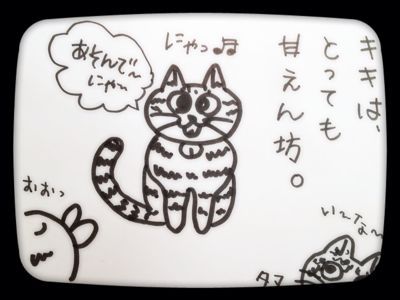 キキは、
とっても
甘えん坊。
にゃっ♫
あそんで〜
にゃ〜
おおっ
い〜な〜
タマ